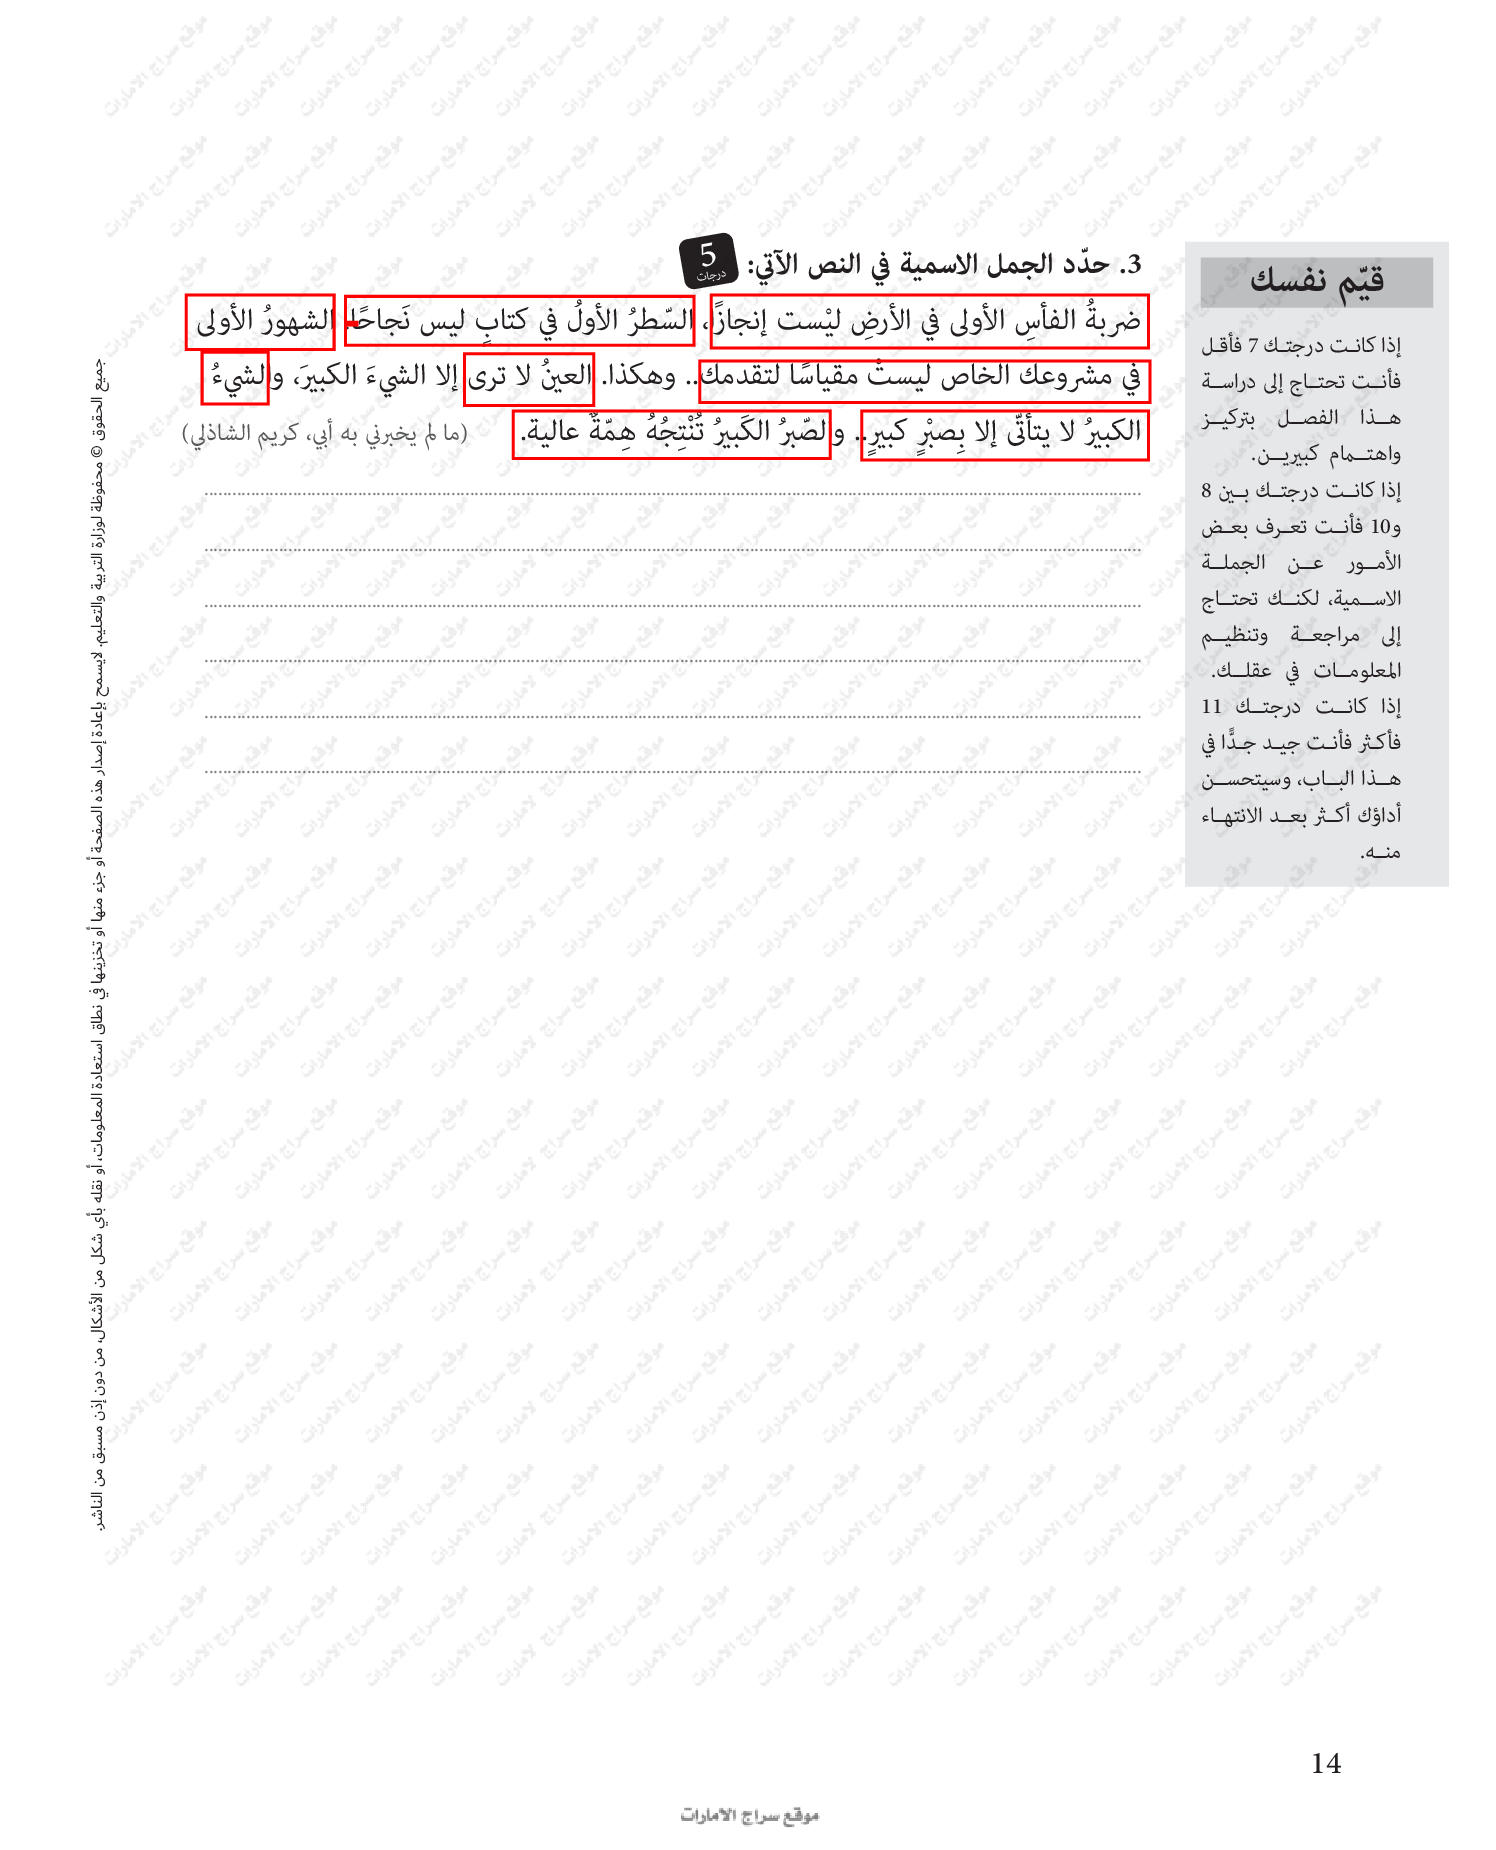 3. حدّد الجمل الاسمية في النص الآتي:
5
درجات
ضربةُ الفأسِ الأولى في الأرضِ ليْست إنجازًا، السّطرُ الأولُ في كتابٍ ليس نَجاحًا، الشهورُ الأولى
في مشروعك الخاص ليستْ مقياسًا لتقدمك.. وهكذا. العينُ لا ترى إلا الشيءَ الكبيرَ، والشيءُ
الكبيرُ لا يتأتّى إلا بِصبْرٍ كبيرٍ.. والصّبرُ الكَبيرُ تُنْتِجُهُ هِمّةٌ عالية.
(ما لم يخبرني به أبي، كريم الشاذلي)
قيّم نفسك
إذا كانت درجتك 7 فأقل
فأنت تحتاج إلى دراسة
هذا الفصل بتركيز
واهتمام كبيرين.
إذا كانت درجتك بين 8
و10 فأنت تعرف بعض
الأمور عن الجملة
الاسمية، لكنك تحتاج
إلى مراجعة وتنظيم
المعلومات في عقلك.
إذا كانت درجتك 11
فأكثر فأنت جيد جدًّا في
هذا الباب، وسيتحسن
أداؤك أكثر بعد الانتهاء
منه.
جميع الحقوق © محفوظة لوزارة التربية والتعليم. لايسمح بإعادة إصدار هذه الصفحة أو جزء منها أو تخزينها في نطاق استعادة المعلومات، أو نقله بأي شكل من الأشكال، من دون إذن مسبق من الناشر.
14
موقع سراج الامارات